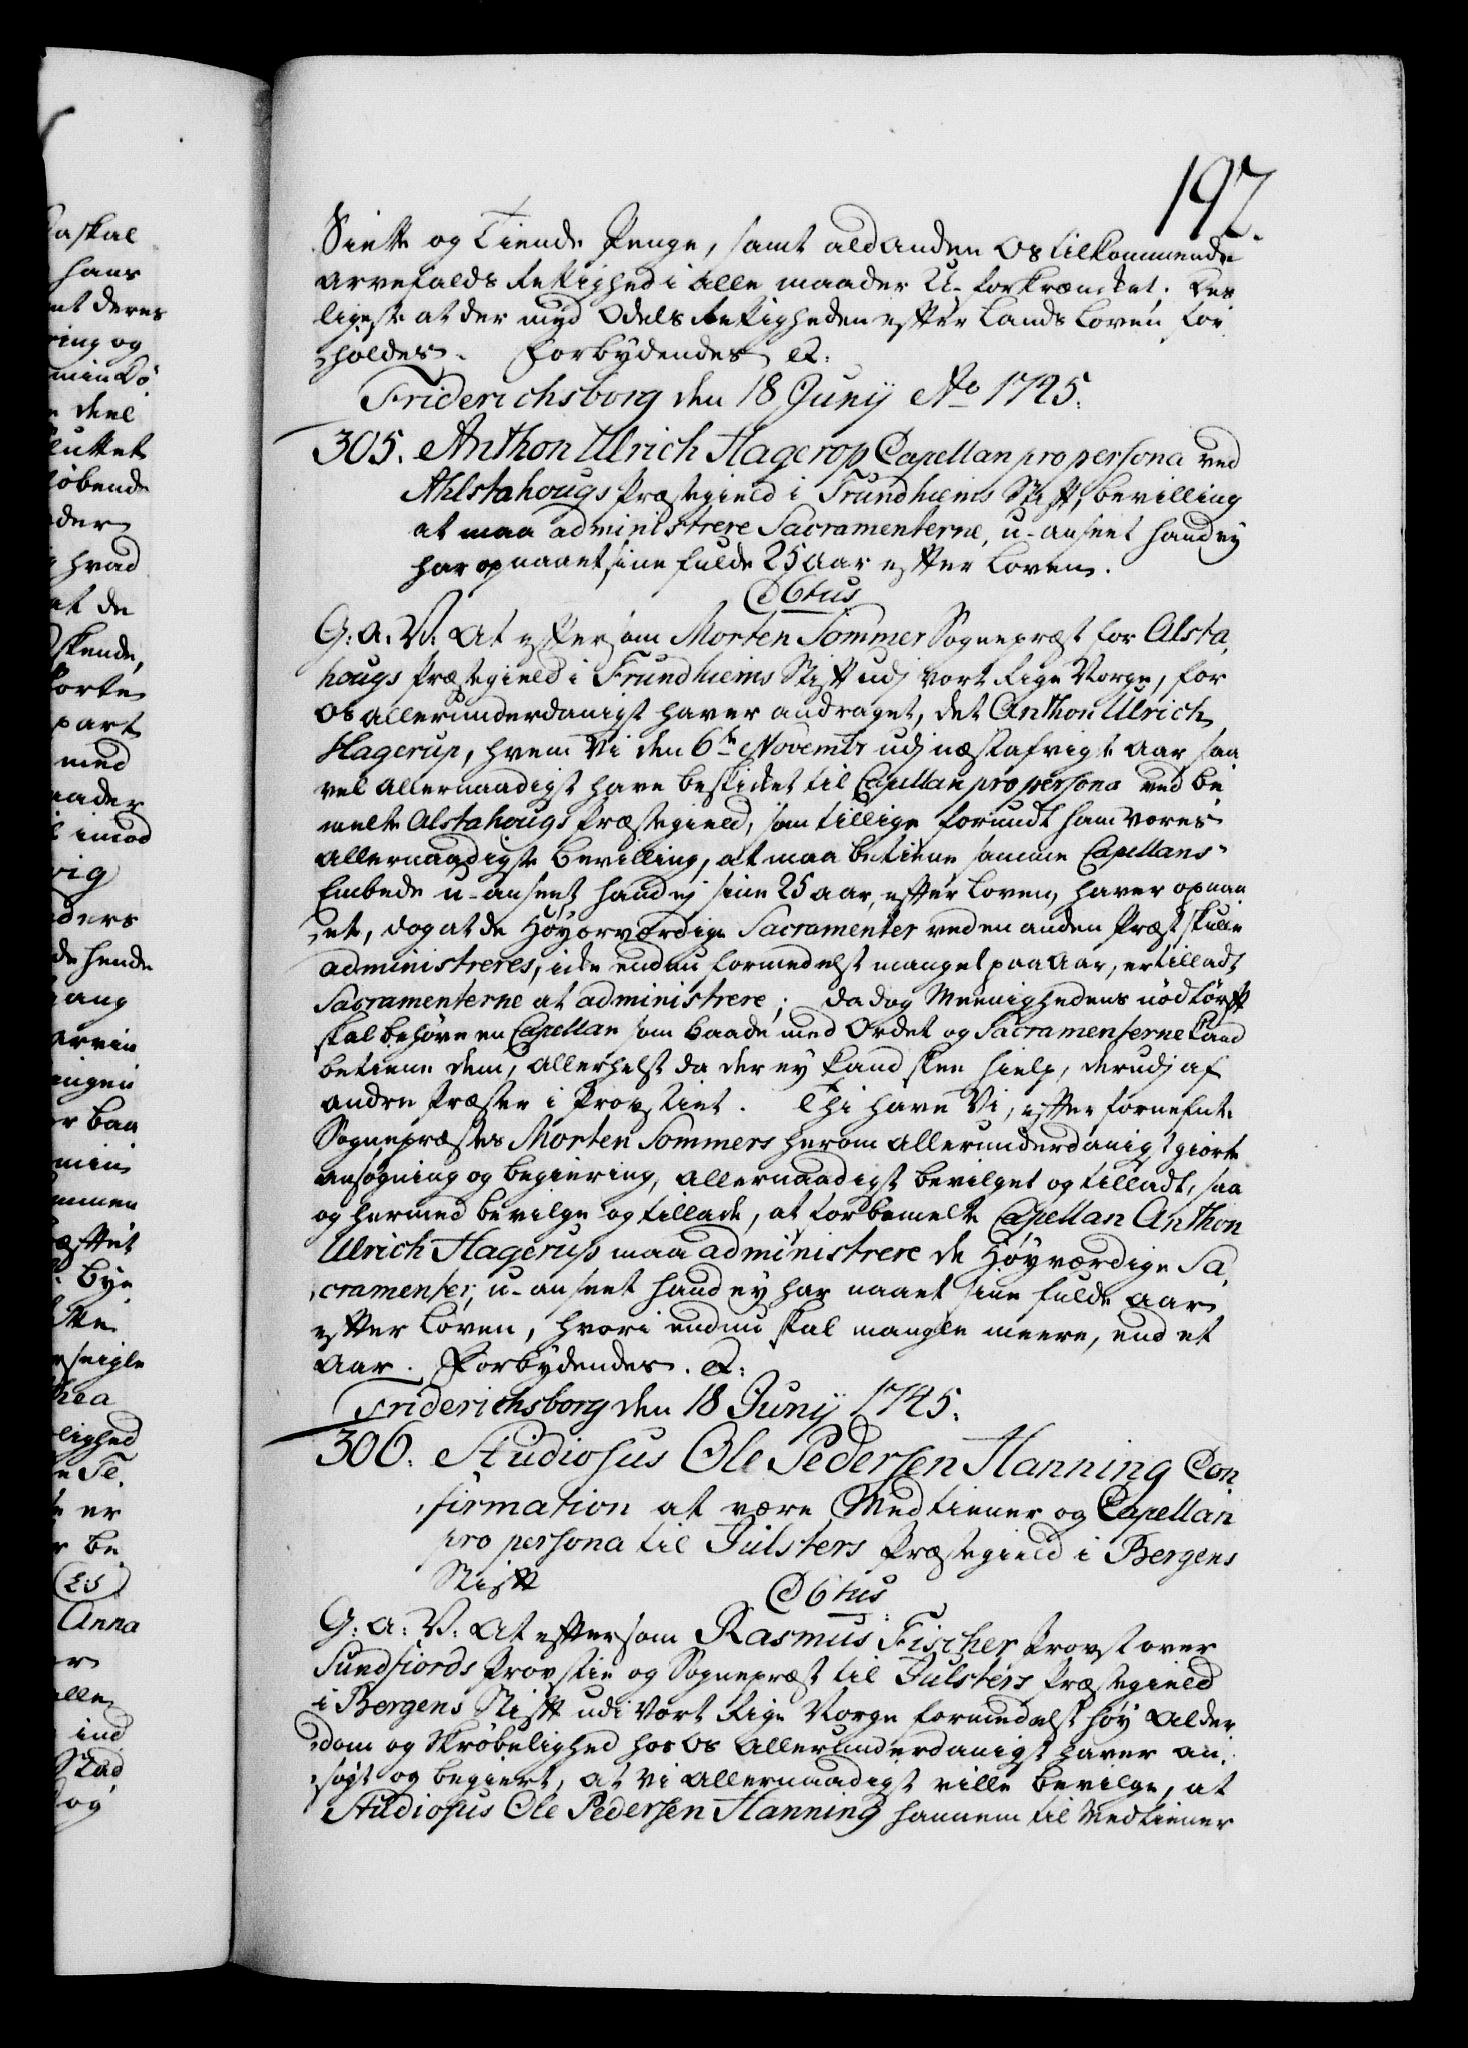 197.
Siette og Tiende Penge, samt ald anden Os tilkommende
arvefalds Rettighed i alle maader U-forkrænket; Des
ligeste at der med Odels Rettigheden efter Lands Loven for
holdes. Forbydendes &:
Friderichsborg den 18 Junij Ao 1745.
305. Anthon Ulrich Hagerop Capellan pro persona ved
Ahlstahougs Præstegield i Trundhiems Stift, bevilling
at maa administrere Sacramenterne, u-anseet hand ej
har opnaaet sine fulde 25 aar efter Loven.
C 6tus
G: A: V: At eftersom Morten Sommer Sognepræst for Alsta,
hougs Præstegield i Trundhiems Stift udj vort Rige Norge, for
Os allerunderdanigst haver andraget, det Anthon Ulrich
Hagerup, hvem Vi den 6te Novembr udj næstafvigte aar saa
vel allernaadigst have beskicket til Capellan pro persona ved be
melte Alstahougs Præstegield, som tillige forundt ham vores
allernaadigste bevilling, at maa betiene samme Capellans
Embede u-anseet hand ej sine 25 aar, efter Loven, haver opnaa
et, dog at de Höyærværdige Sacramenter ved en anden Præst skulle
administreres, icke endnu formedelst mangel paa aar, er tilladt
Sacramenterne at administrere; da dog Meenighedens nødtørft
skal behøve en Capellan som baade med Ordet og Sacramenterne kand
betiene dem, allerhelst da der ej kand skee hielp, derudj af
andre Præster i Provstiet. Thi have Vi, efter fornefnte
Sognepræstes Morten Sommers herom allerunderdanigst giorte
ansøgning og begiering, allernaadigst bevilget og tilladt, saa
og hermed bevilge og tillade, at forbemelte Capellan Anthon
Ulrich Hagerup maa administrere de Höyværdige Sa,
cramenter, u-anseet hand ej har naaet sine fulde aar
efter Loven, hvori endnu skal mangle meere, end et
aar. Forbydendes. &:
Friderichsborg den 18 Junij 1745.
306. Studiosus Ole Pedersen Hanning Con
firmation at være Medtiener og Capellan
pro persona til Jülsters Præstegield i Bergens
Stift
C 6tus
G: A: V: At eftersom Rasmus Fischer Provst over
Sundfiords Provstie og Sognepræst til Jülsters Præstegield
i Bergens Stift udi vort Rige Norge formedelst høy alder
dom og Skrøbelighed hos Os allerunderdanigst haver an,
søgt og begiert, at Vi allernaadigst ville bevilge, at
Studiosus Ole Pedersen Hanning hannem til Medtiener